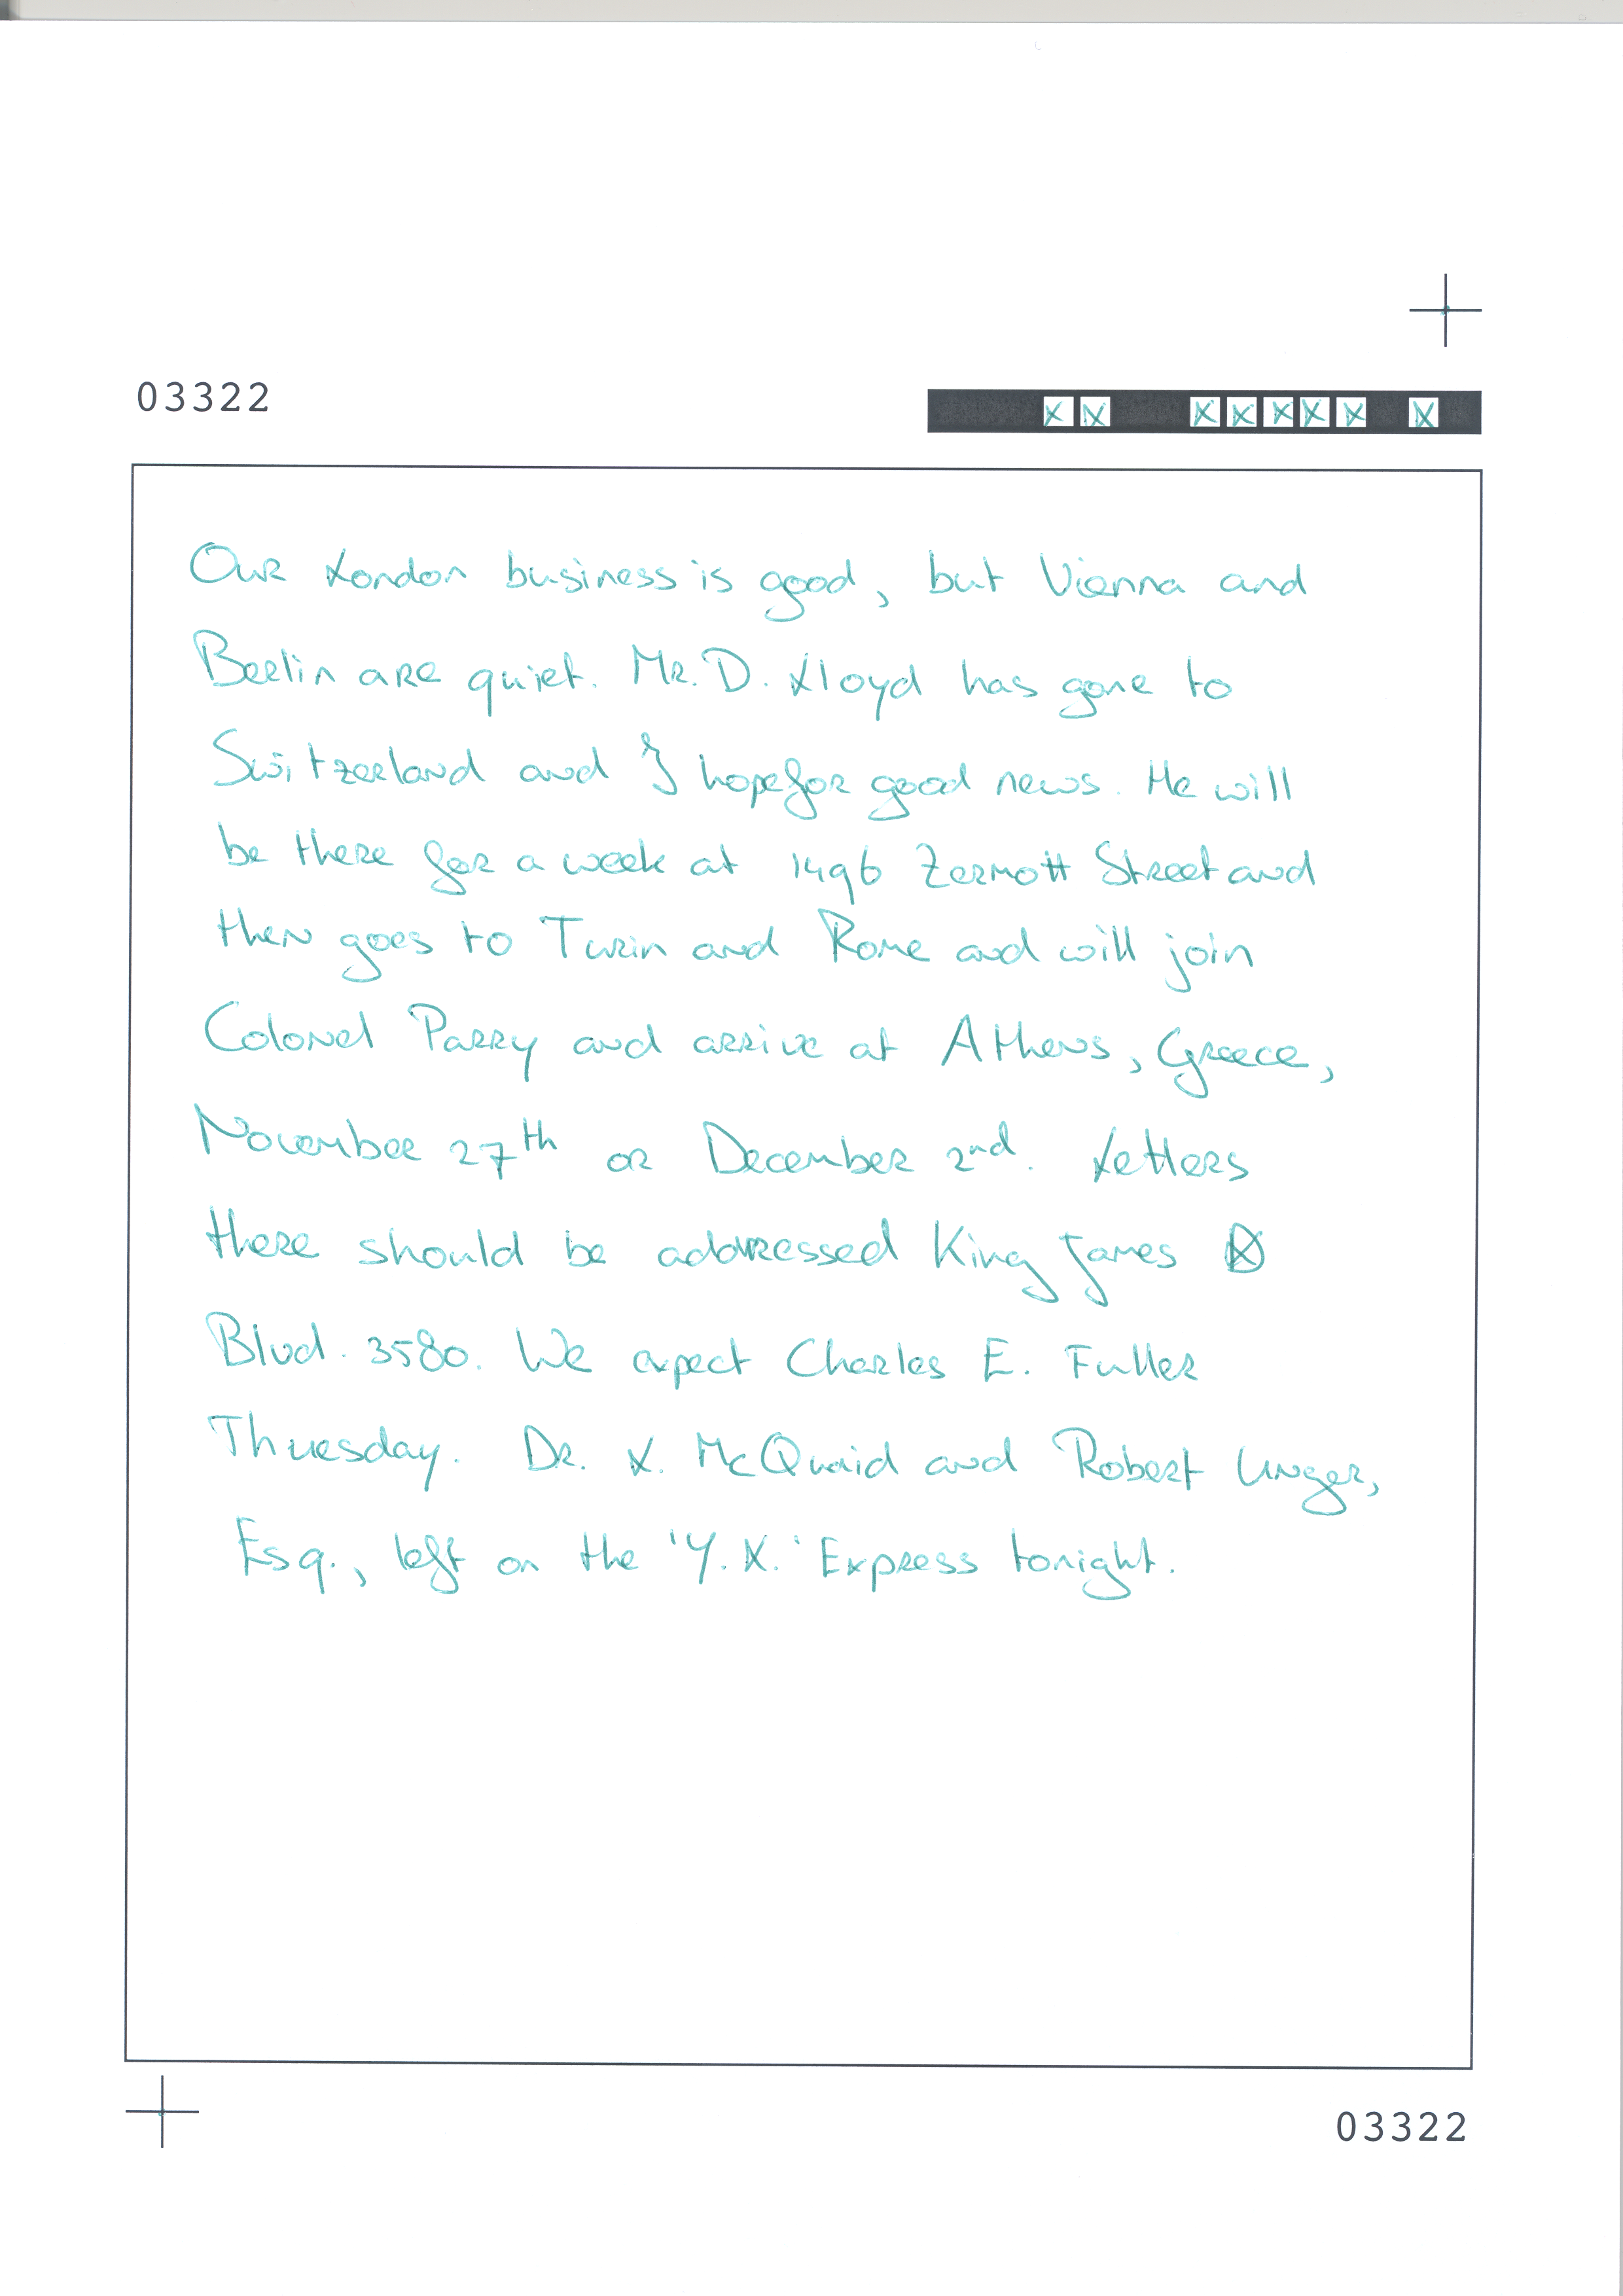 03322
Our London business is good, but Vienna and
Berlin are quiet. Mr. D. Lloyd has gone to
Switzerland and I hope for good news. He will
be there for a week at 1496 Zermott Street and
then goes to Turin and Rome and will join
Colonel Parry and arrive at Athens, Greece,
November 27th or December 2nd. Letters
there should be addressed King James
Blvd. 3580. We expect Charles E. Fuller
Thuesday. Dr. L. McQuaid and Robert Unger,
Esq., left on the 'Y.X.' Express tonight.
03322